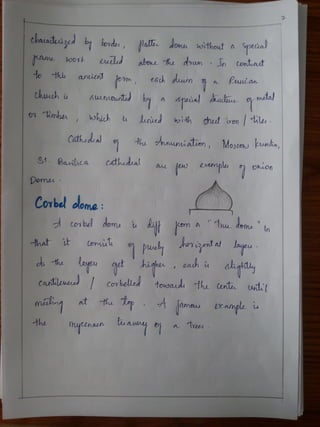 2
characterized by border, flatter domes without a special
frame work erected above the drum. In contrast
to this ancient form, each drum of a Russian
church is surmounted by a special structure of metal
or timber, which is lined with sheet iron / tiles.
Cathedral of the Annunciation, Moscow Kremlin,
St. Basilica cathedral are few examples of onion
Domes.
Corbel dome:
A corbel dome is diff from a "true dome" in
that it consists of purely horizontal layers.
As the layers get higher, each is slightly
cantilevered / corbelled towards the center until
meeting at the top. A famous example is
the mycenaen treasury of a Treus.